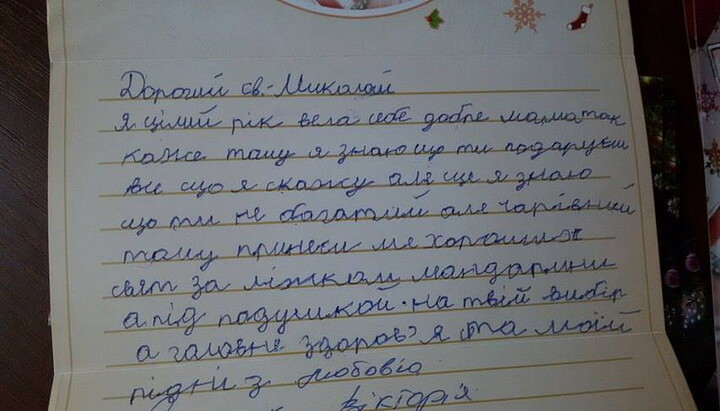 Дорогий св. Миколай
я цілий рік вела себе добре мама так
каже тому я знаю що ти подаруєш
все що я скажу але ще я знаю
що ти не багатий але чарівний
тому принеси ме хороших
свят за ліжком мандарини
а під подушкой. на твій вибір
а головне здоров'я та моїй
рідні з любовіа
Вікторія